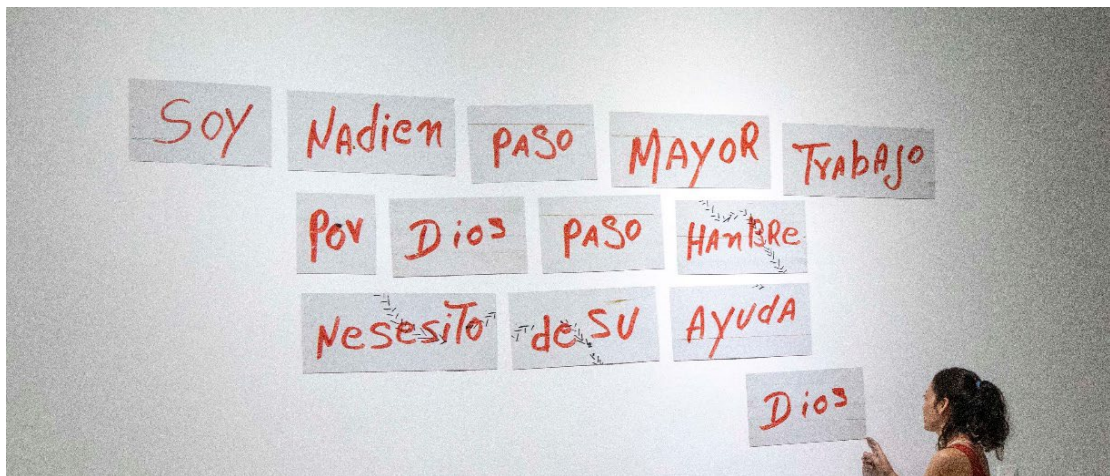 SOY NAdien PASO MAYOR TrAbAJo
Por Dios PASO HAnBRe
NesesiTo de SU AYUdA
Dios